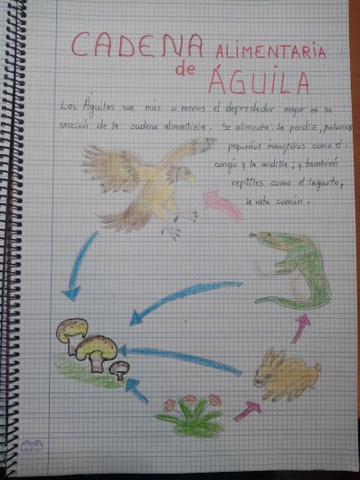 CADENA ALIMENTARIA
de ÁGUILA
Las Águilas son más o menos el depredador mayor en su
sección de la cadena alimenticia. Se alimenta: la perdiz, palomas
pequeños mamíferos como el
conejo y la ardilla, y también
reptiles como el lagarto,
la rata común.